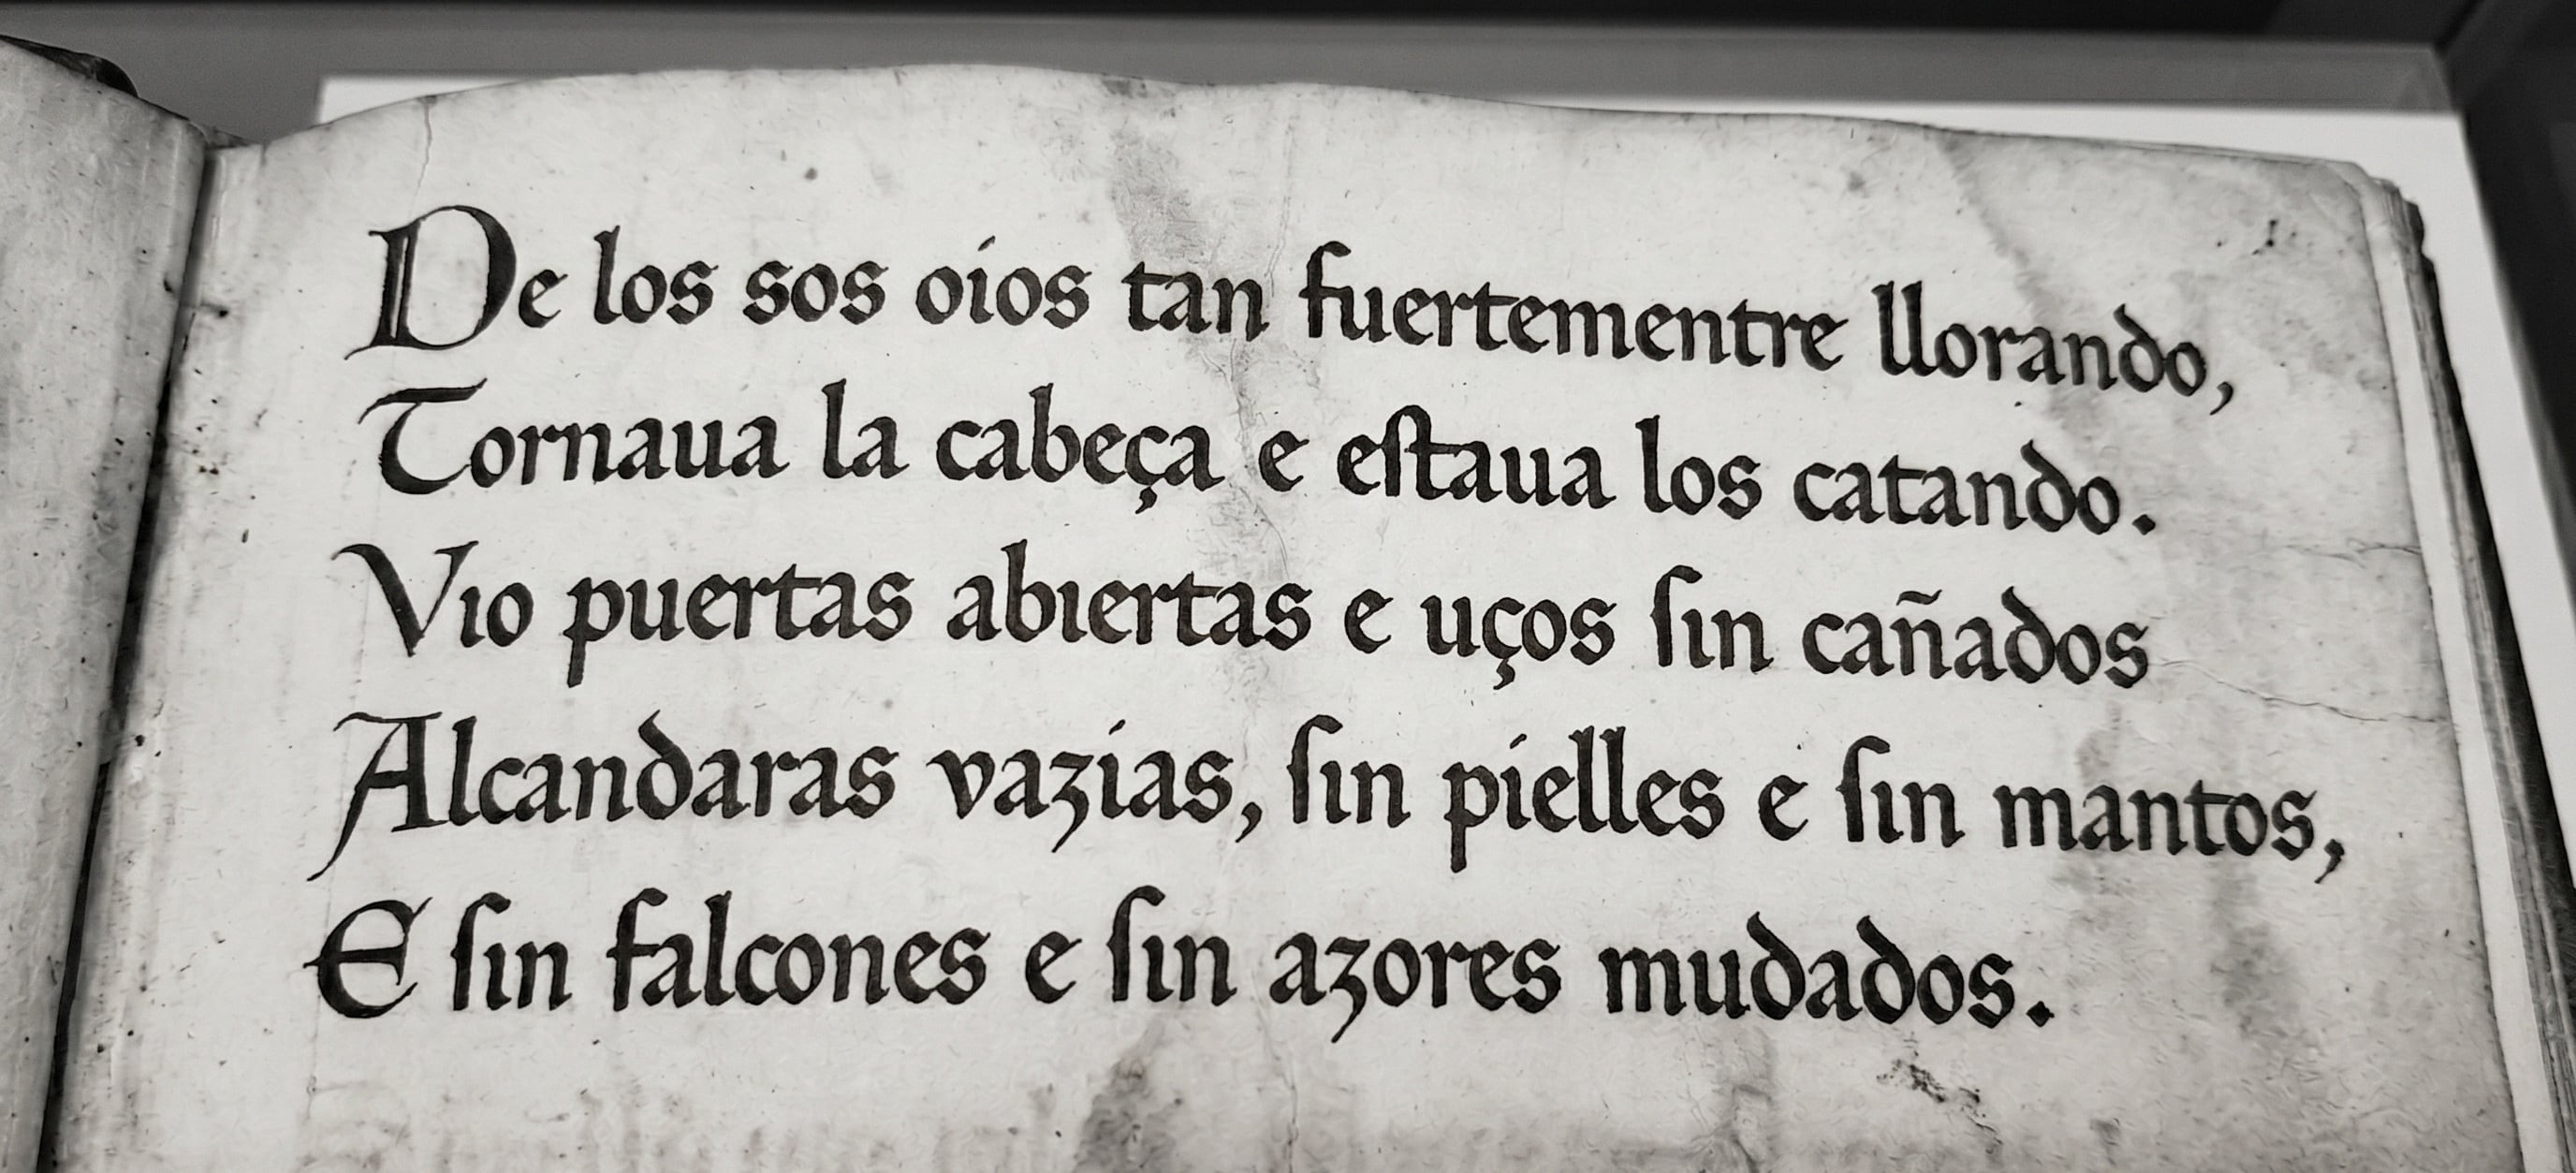 De los sos oios tan fuertementre llorando,
Tornaua la cabeça e eſtaua los catando.
Vıo puertas abıertas e uços ſın cañados
Alcandaras vazias, ſın pielles e ſın mantos,
E ſın falcones e ſın azores mudados.